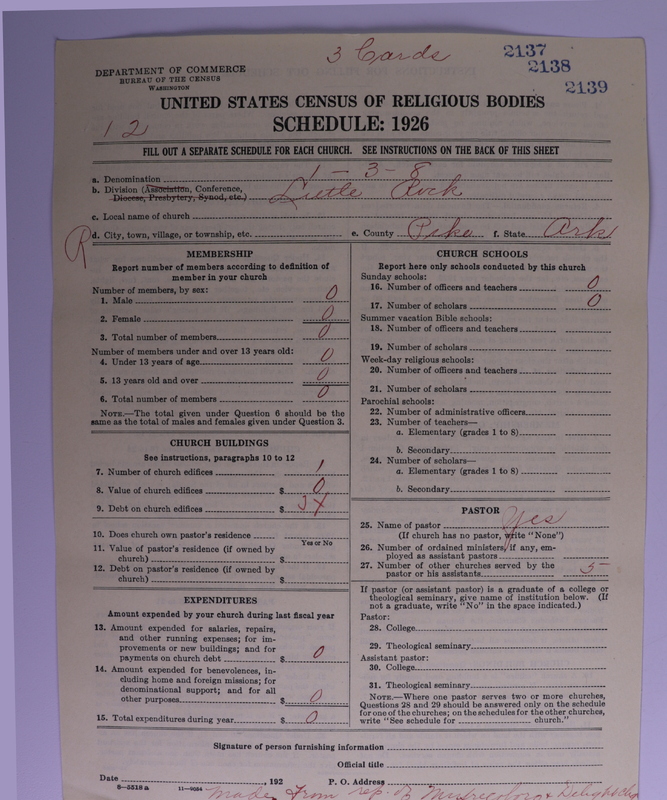 3 Cards
2137
2138
2139
DEPARTMENT OF COMMERCE
BUREAU OF THE CENSUS
WASHINGTON
UNITED STATES CENSUS OF RELIGIOUS BODIES
12
SCHEDULE: 1926
FILL OUT A SEPARATE SCHEDULE FOR EACH CHURCH. SEE INSTRUCTIONS ON THE BACK OF THIS SHEET
a. Denomination 1-3-8
b. Division (Association, Conference,
Diocese, Presbytery, Synod, etc.) Little Rock
c. Local name of church
R
d. City, town, village, or township, etc. e. County Pike f. State Ark
MEMBERSHIP
Report number of members according to definition of
member in your church
Number of members, by sex:
1. Male 0
2. Female 0
3. Total number of members 0
Number of members under and over 13 years old:
4. Under 13 years of age 0
5. 13 years old and over 0
6. Total number of members 0
NOTE.—The total given under Question 6 should be the
same as the total of males and females given under Question 3.
CHURCH BUILDINGS
See instructions, paragraphs 10 to 12
7. Number of church edifices 1
8. Value of church edifices $ 0
9. Debt on church edifices $
10. Does church own pastor's residence
Yes or No
11. Value of pastor's residence (if owned by
church) $
12. Debt on pastor's residence (if owned by
church) $
EXPENDITURES
Amount expended by your church during last fiscal year
13. Amount expended for salaries, repairs,
and other running expenses; for im-
provements or new buildings; and for
payments on church debt $ 0
14. Amount expended for benevolences, in-
cluding home and foreign missions; for
denominational support; and for all
other purposes $ 0
15. Total expenditures during year $ 0
CHURCH SCHOOLS
Report here only schools conducted by this church
Sunday schools:
16. Number of officers and teachers 0
17. Number of scholars 0
Summer vacation Bible schools:
18. Number of officers and teachers
19. Number of scholars
Week-day religious schools:
20. Number of officers and teachers
21. Number of scholars
Parochial schools:
22. Number of administrative officers
23. Number of teachers—
a. Elementary (grades 1 to 8)
b. Secondary
24. Number of scholars—
a. Elementary (grades 1 to 8)
b. Secondary
PASTOR
25. Name of pastor Yes
(If church has no pastor, write "None")
26. Number of ordained ministers, if any, em-
ployed as assistant pastors
27. Number of other churches served by the
pastor or his assistants 5
If pastor (or assistant pastor) is a graduate of a college or
theological seminary, give name of institution below. (If
not a graduate, write "No" in the space indicated.)
Pastor:
28. College
29. Theological seminary
Assistant pastor:
30. College
31. Theological seminary
NOTE.—Where one pastor serves two or more churches,
Questions 28 and 29 should be answered only on the schedule
for one of the churches; on the schedules for the other churches,
write "See schedule for church."
Signature of person furnishing information
Official title
Date , 192 P. O. Address
8-5518a 11-9084
Made from rep. of Murfreesboro & Delight